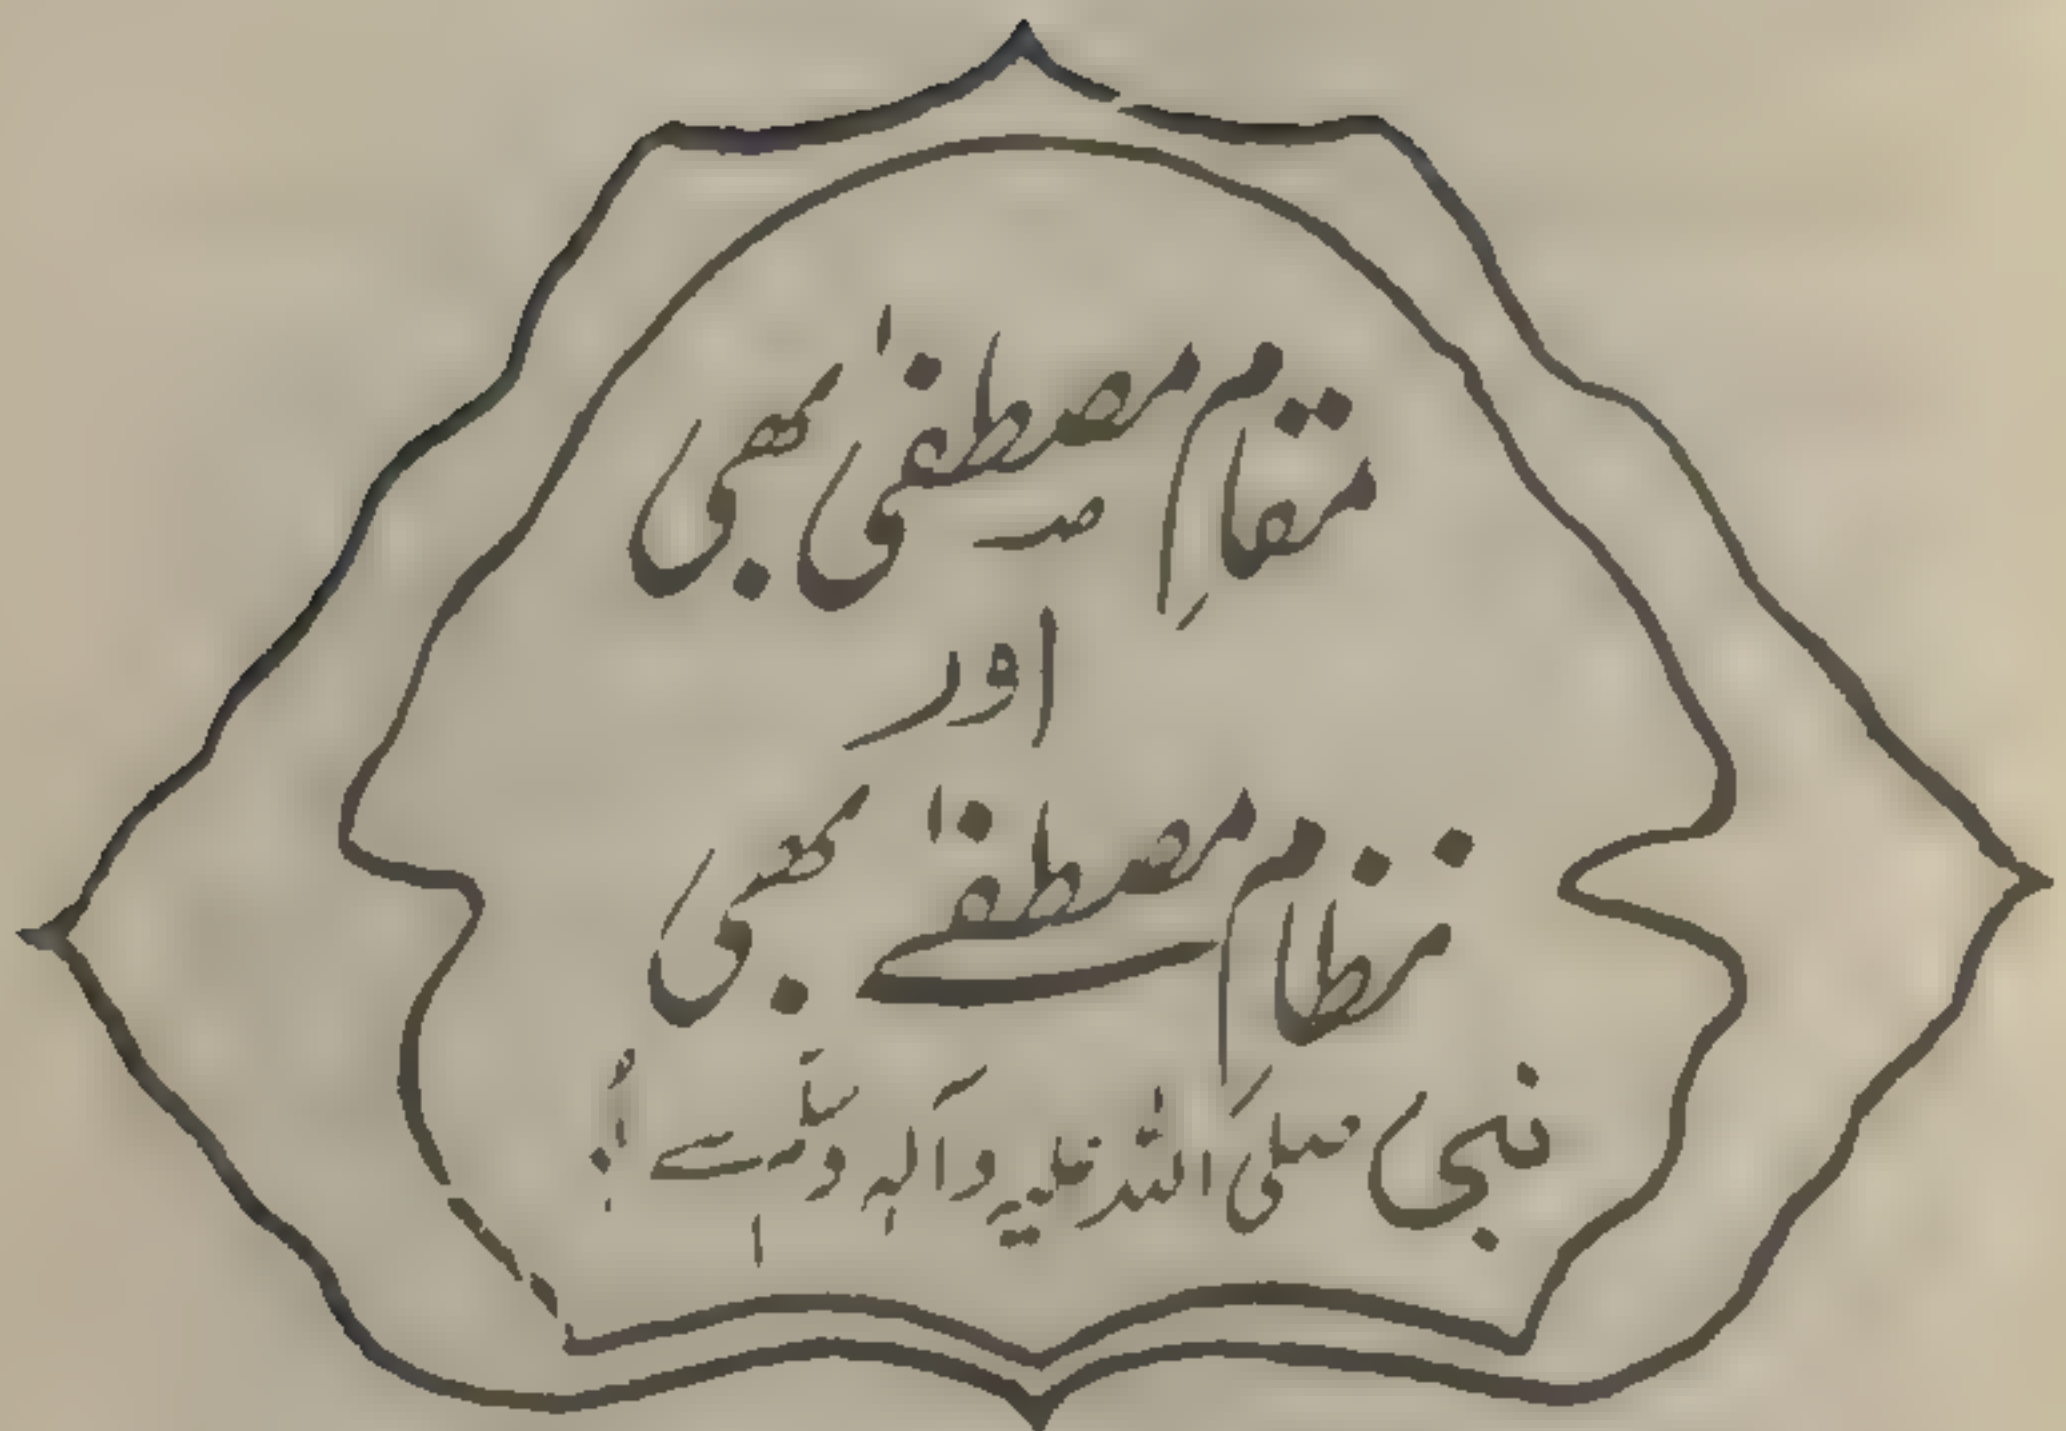 مقامِ مصطفیٰ ؐ بھی
اور
نظامِ مصطفےٰ بھی
نبی صلی اللہ علیہ وآلہ وسلم سے